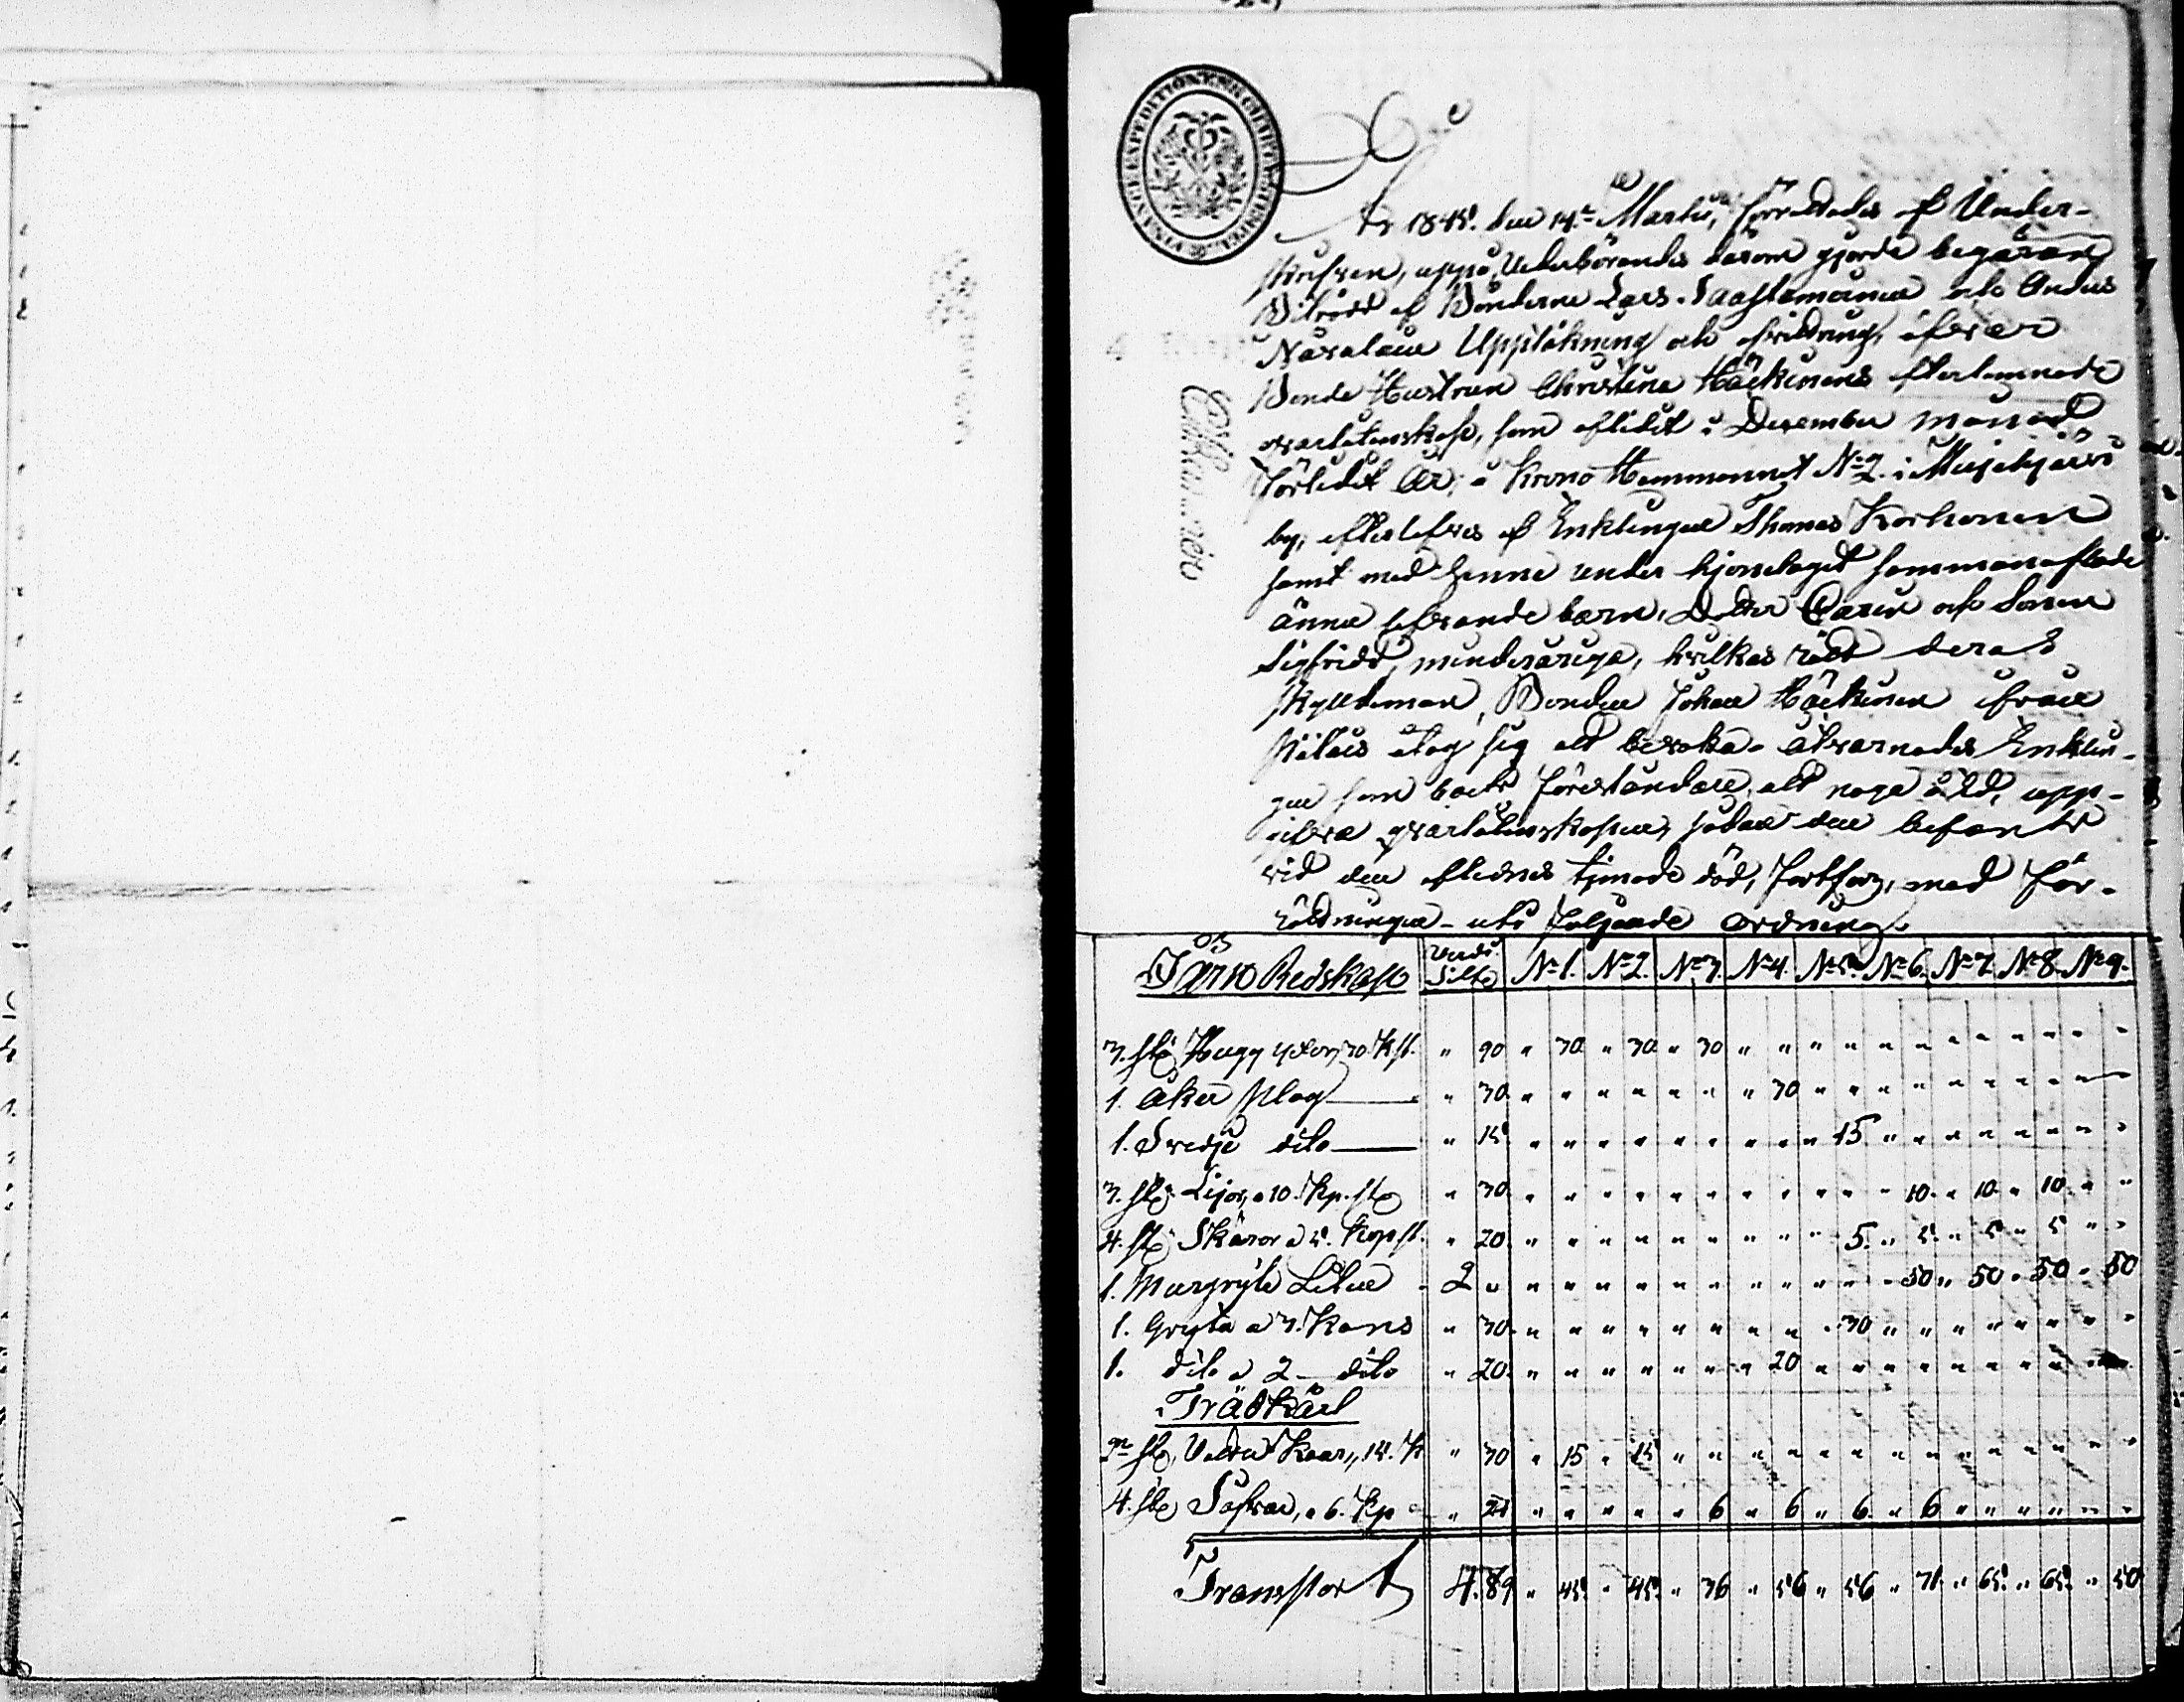 FINANCE EXPEDITIONENS CHARTÆ STEMPEL
År 1845. den 14.de Martii, förrättades af Under-
skrifven, uppå Vederbörandes därom gjorde begäran
Biträdd af Bönderne Lars Saastamoinen och Anders
Uppteckning och värdering, öfver
Bonde Hustrun Christina Häckinens efterlemnade
qvarlåtenskap, som aflidit i December månad
förledit År, å Krono Hemmannet N:o 2. i
by, efterlefves af Enklingen Thomas Korhonen
samt med henne under hjonelaget sammanaflade
ännu lefvande barn, Dotter Carin och Sonen
Sigfrid, minderåriga, hvilkas rätt deras
Skyldeman, Bonden Johan Häckinen ifrån
åtog sig att bevaka. åtvarnades Enklin-
gen som boets föreståndare, att noga och, upp-
gifva qvarlåtenskapen, sådan den befants
vid den aflednes timade död, fortfors, med för-
rättningen uti följande ordning.
Järn Redskap Verde Silfr N:o 1. N:o 2. N:o 3. N:o 4. N:o 5. N:o 6. N:o 7. N:o 8. N:o 9.
3. st. Hugg yxor, 30. K st. " 90 " 30 " 30 " 30 " " " " " " " " " " " "
1. Åker Plog " 30 " " " " " " " 30 " " " " " " " " " "
1. Svedje dito " 15 " " " " " " " " " 15 " " " " " " " "
3. st. Lijor, a 10. Kp. st. " 30 " " " " " " " " " " " 10 " 10 " 10 " "
4. st. Skäror a 5. Kop st. " 20 " " " " " " " " " 5 " 5 " 5 " 5 " "
1. Murgryta Liten 2 " " " " " " " " " " " " 50 " 50 " 50 " 50
1. Gryta a 3. Kans " 30 " " " " " " " " " 30 " " " " " " " "
1. dito a 2 dito " 20 " " " " " " " 20 " " " " " " " " " "
Trädkäril
2 st. Kaar, 15. K " 30 " 15 " 15 " " " " " " " " " " " " " "
4. st. Såfvar, a 6. Kp " 24 " " " " " 6 " 6 " 6 " 6 " " " " " "
Transport 4. 89 " 45 " 45 " 36 " 56 " 56 " 71 " 65 " 65 " 50